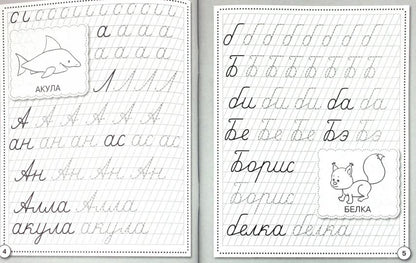 сісісісісісісісі
а а а а
а а а а
АКУЛА
Л Л Л Л
А А А А А А
ан ан ан ас ас ас
Ан Ан Ан Ан
Алла Алла
акула акула
4
б б б б б б б б
Б Б Б Б Б Б Б Б
би би би ба ба
Бе Бе Бе Бэ Бэ
Борис
Борис
БЕЛКА
белка белка
5